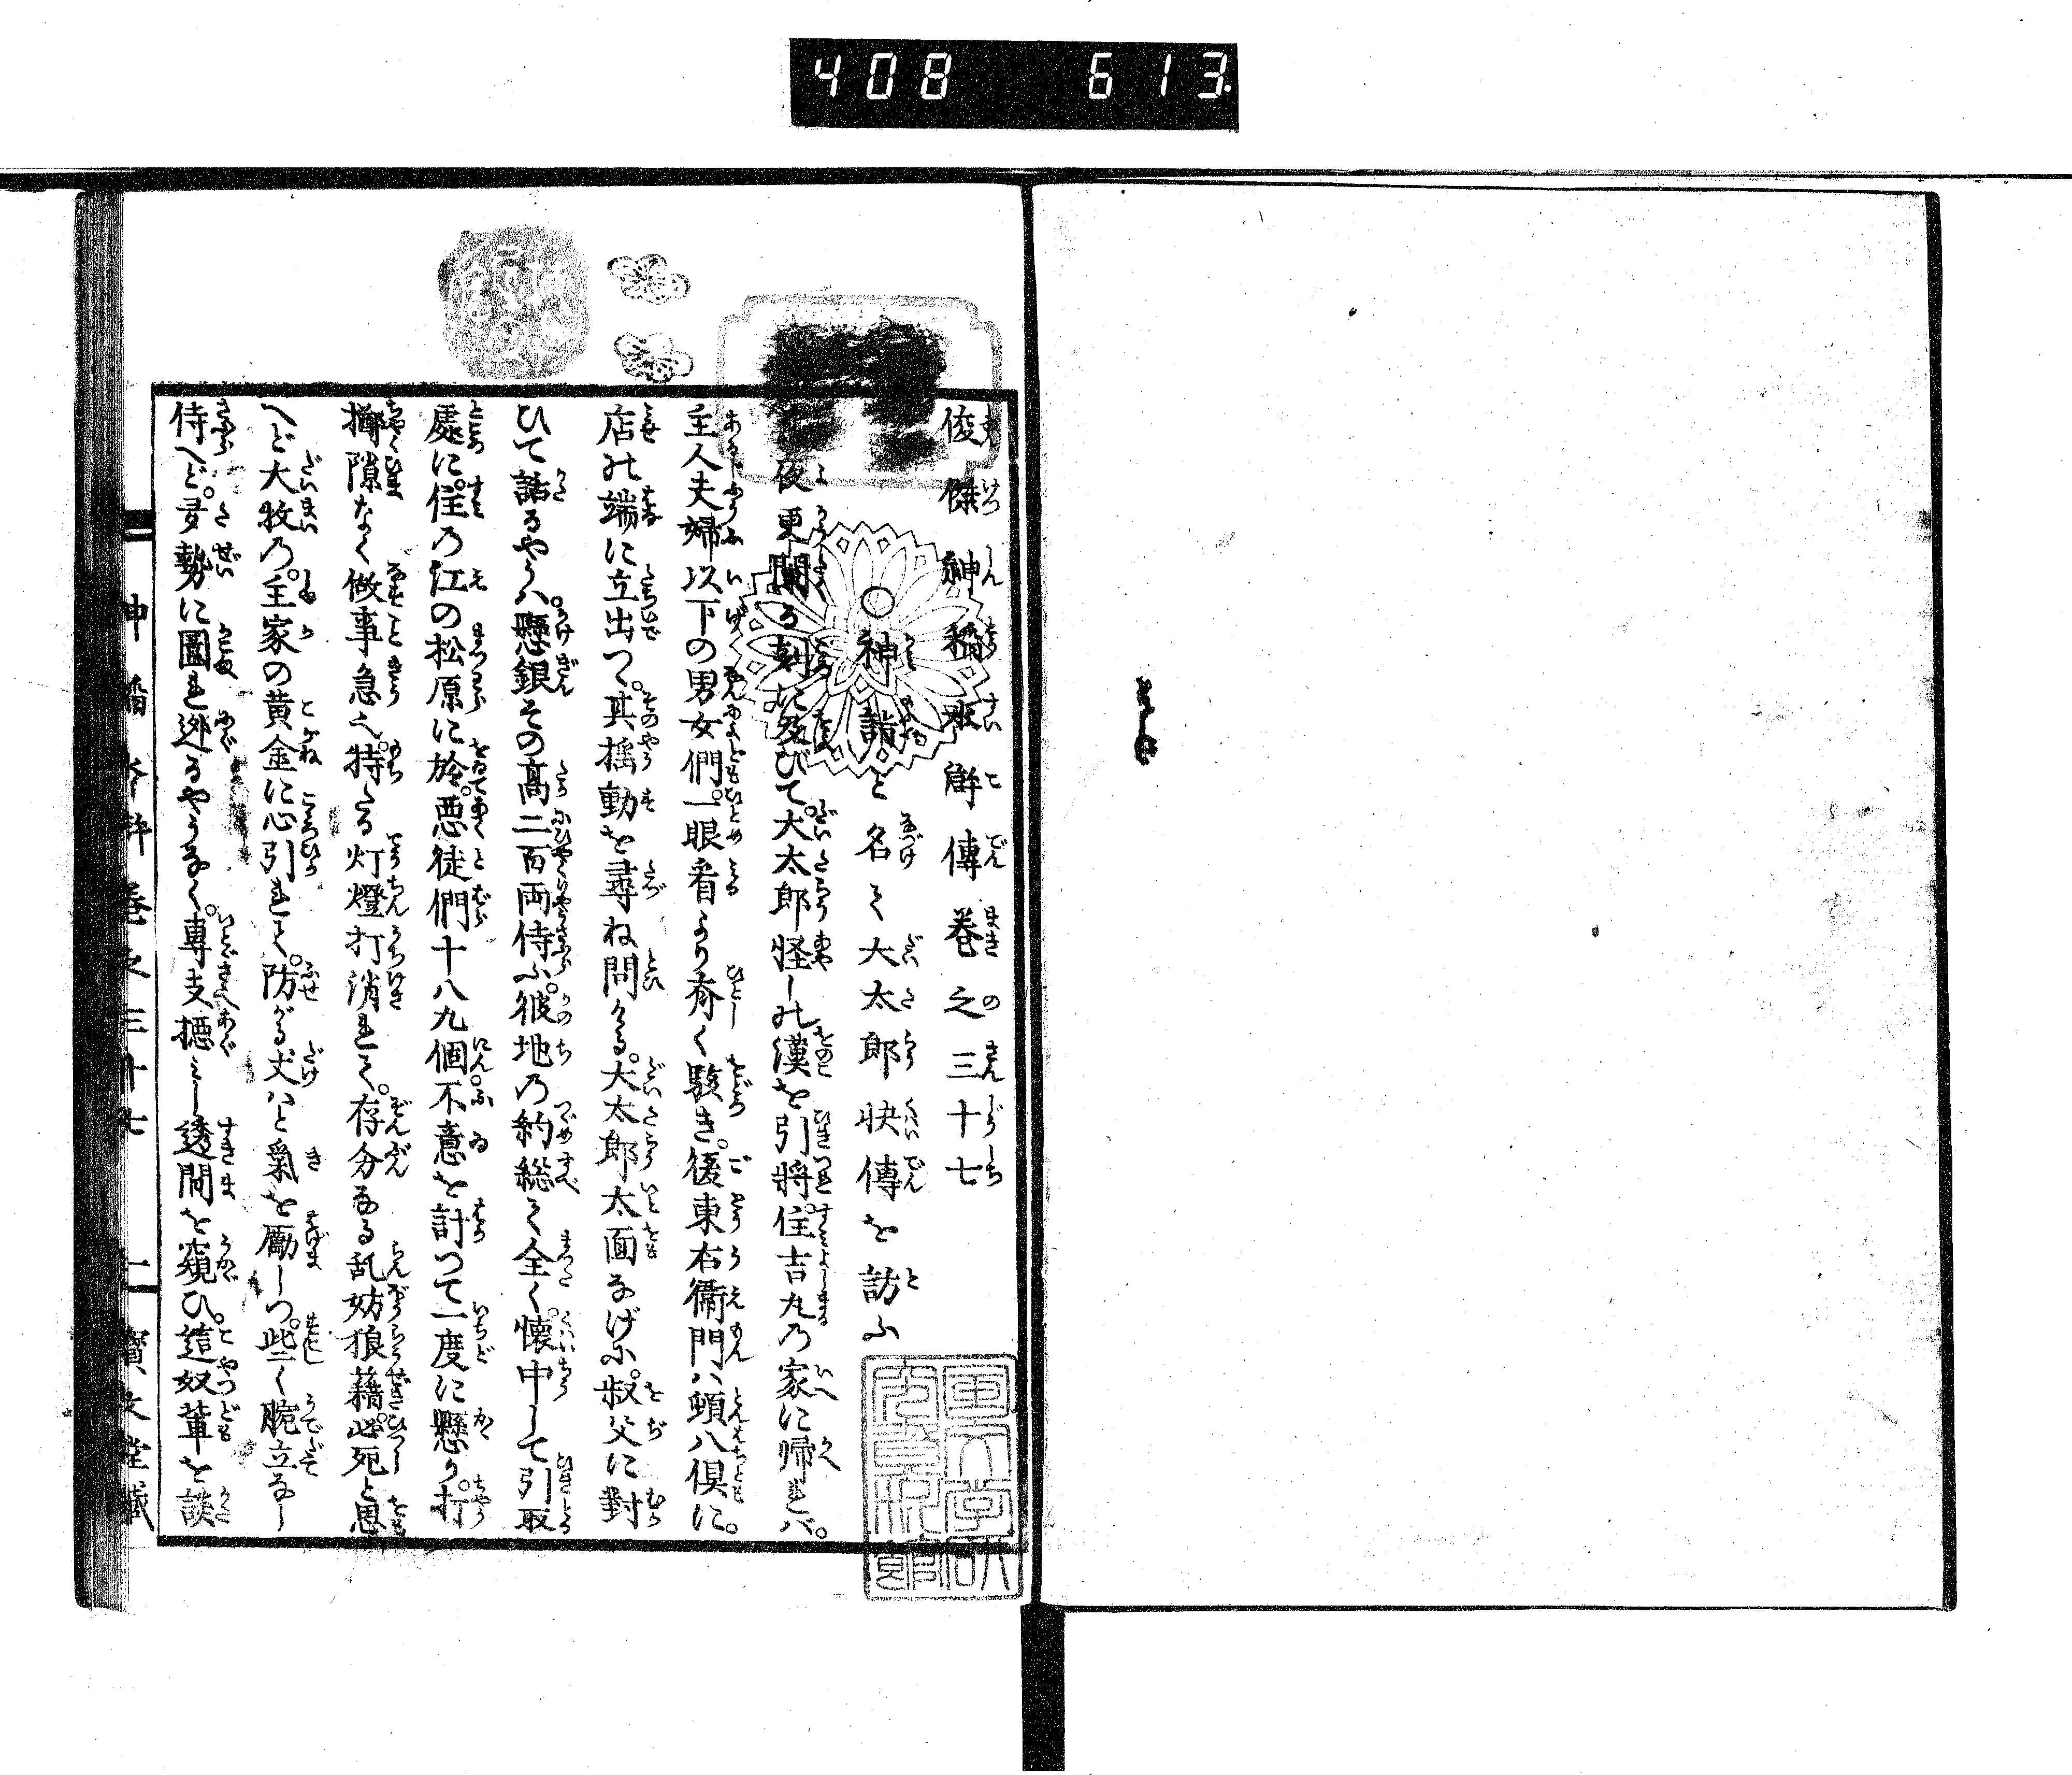 408 613
俊傑神稲水滸傳巻之三十七
○神詣と名て大太郎快傳を訪ふ
夜更闌る刻に及びて。大太郎怪しの漢を引将。住吉丸の家に帰れバ。
主人夫婦以下の男女們。一眼看より斉く駭き。後東右衛門ハ頭八倶に。
店の端に立出つ。其揺動を尋ね問ける。大太郎太面なげに。叔父に對
ひて語るやう。ハ懸銀その高二百両侍ふ。彼地の約総て全く。懐中して引取
處に。住の江の松原に於。悪徒們十八九個不意を計つて一度に懸り。打
擲隙なく做事急也。持たる灯燈打消れて。存分なる乱妨狼藉。必死と思
へど大牧の。主家の黄金に心引れて。防がる丈ハと氣を勵しつ。些く腕立なし
侍へど。多勢に圖れ迯るやうなく。専支摠し透間を窺ひ。這奴輩を談
神稲水滸巻之三十七 一 寶文堂藏